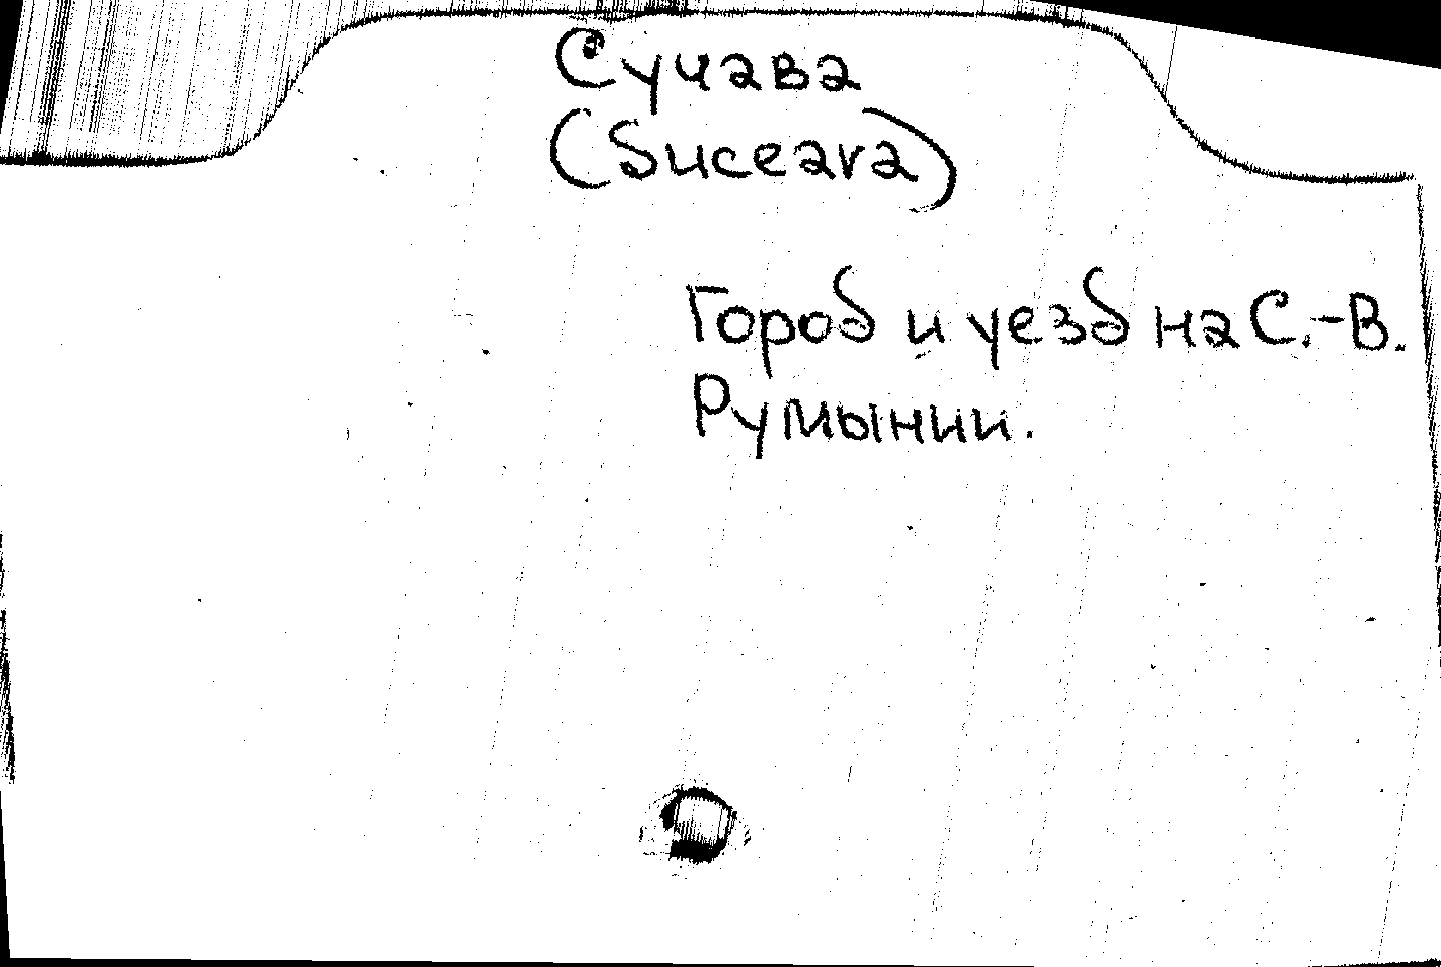 Сучава
(Suceava)
Город и уезд на С.-В.
Румынии.